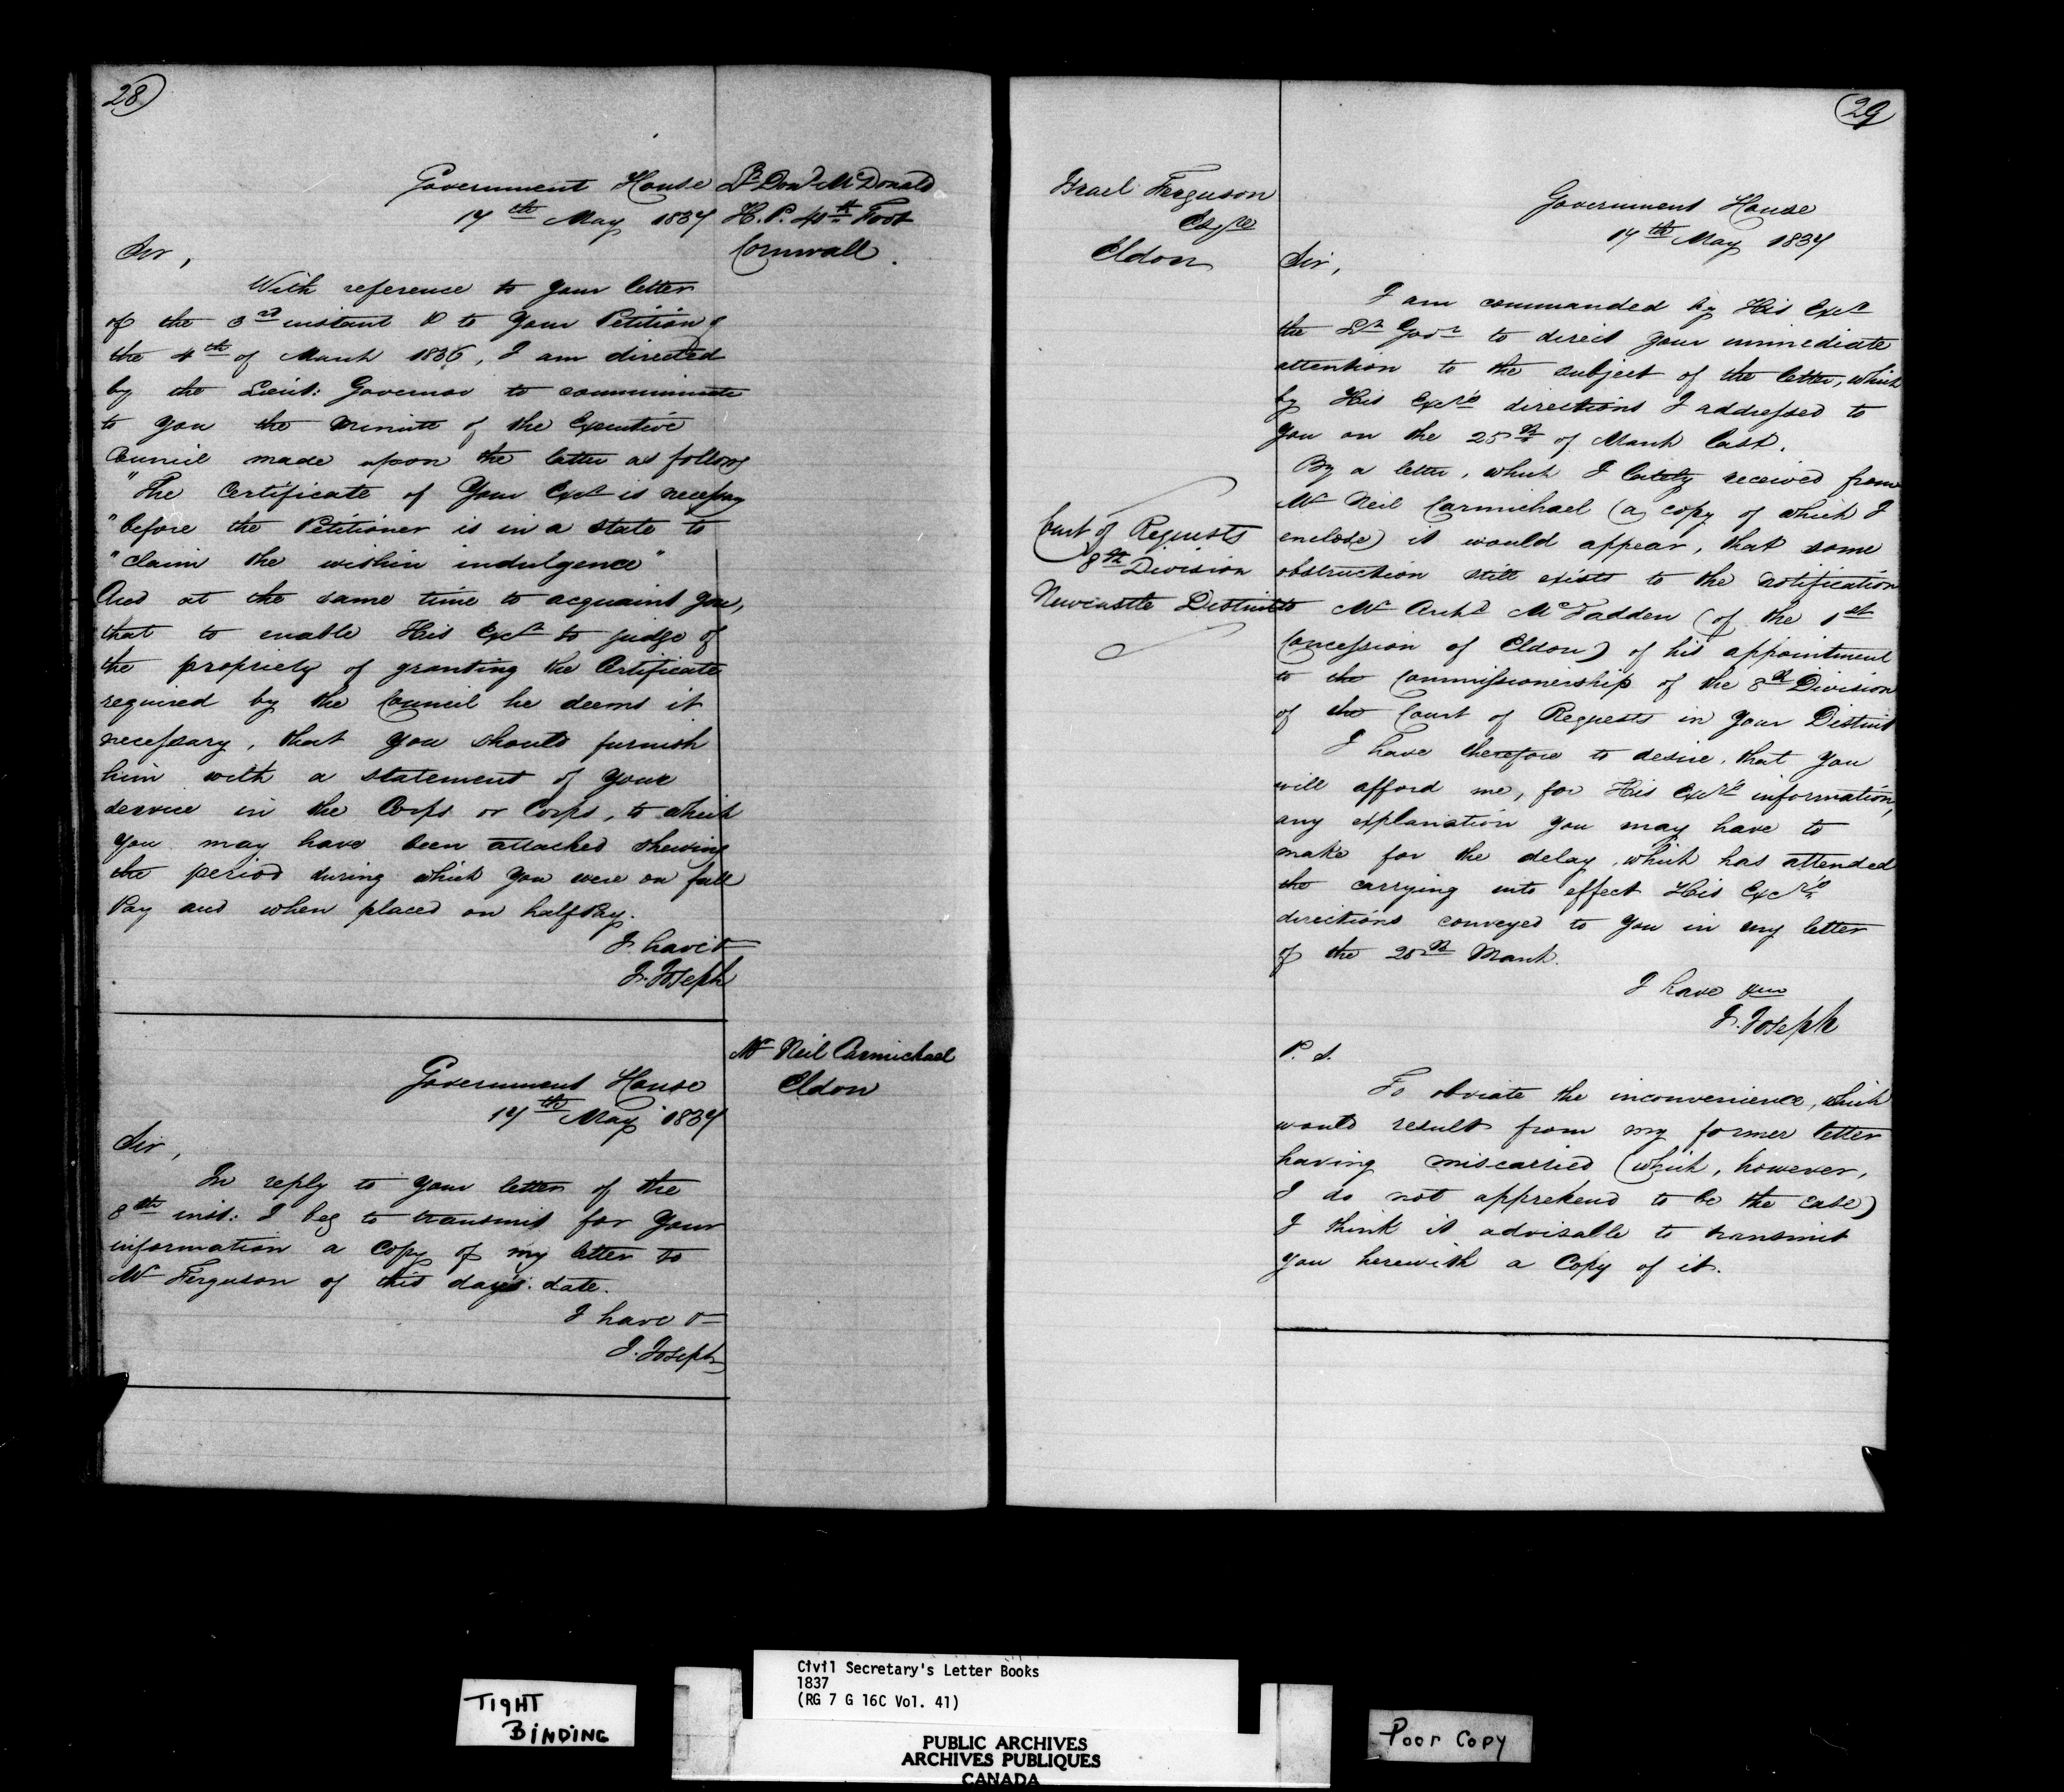 28
Government House
17th May 1837
Lt Dond McDonald
H. P. 41th Foot
Cornwall.
Sir,
With reference to your letter
of the 3rd instant & to your Petition of
the 4th of March 1836, I am directed
by the Lieut: Governor to communicate
to you the minute of the Executive
Council made upon the latter as follows
"The Certificate of Your Excy is necessary
"before the Petitioner is in a state to
"claim the within indulgence"
And at the same time to acquaint you,
that to enable His Excy to judge of
the propriety of granting the Certificate
required by the Council he deems it
necessary, that you should furnish
him with a statement of your
service in the Corps or Corps, to which
you may have been attached shewing
the period during which you were on full
Pay and when placed on half Pay.
I have &
J. Joseph
Mr Neil Carmichael
Eldon
Government House
17th May 1837
Sir,
In reply to your letter of the
8th inst: I beg to transmit for your
information a copy of my letter to
Mr Ferguson of this day's date.
I have &
J. Joseph
29
Israel Ferguson
Esqre
Eldon
Government House
17th May 1837
Sir,
I am commanded by His Excy
the Lt Govr to direct your immediate
attention to the subject of the letter, which
by His Excy's directions I addressed to
you on the 25th of March last.
By a letter, which I lately received from
Mr Neil Carmichael (a copy of which I
enclose) it would appear, that some
obstruction still exists to the notification
to Mr Archd McFadden (of the 1st
Concession of Eldon) of his appointment
to the Commissionership of the 8th Division
of the Court of Requests in your District
Court of Requests
8th Division
Newcastle District
I have therefore to desire, that you
will afford me, for His Excy's information,
any explanation you may have to
make for the delay, which has attended
the carrying into effect His Excy's
directions conveyed to you in my letter
of the 25th March.
I have
J. Joseph
P. S.
To obviate the inconvenience, which
would result from my former letter
having miscarried (which, however,
I do not apprehend to be the case)
I think it advisable to transmit
you herewith a Copy of it.
TIGHT
BINDING
Civil Secretary's Letter Books
1837
(RG 7 G 16C Vol. 41)
PUBLIC ARCHIVES
ARCHIVES PUBLIQUES
CANADA
Poor Copy